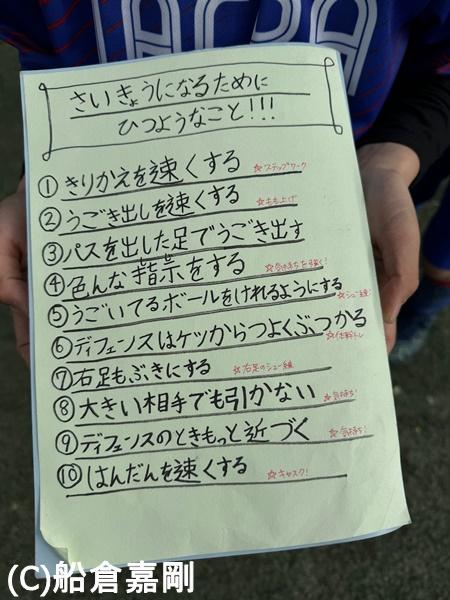 さいきょうになるために
ひつようなこと!!!
①きりかえを速くする ☆ステップワーク
②うごき出しを速くする ☆もも上げ
③パスを出した足でうごき出す
④色んな指示をする ☆気持ちを強く!
⑤うごいてるボールをけれるようにする ☆シュー練!
⑥ディフェンスはケツからつよくぶつかる ☆体幹トレ
⑦右足もぶきにする ☆右足のシュー練
⑧大きい相手でも引かない ☆気持ち!
⑨ディフェンスのときもっと近づく ☆気持ち!
⑩はんだんを速くする ☆キャスク!
(C)船倉嘉剛